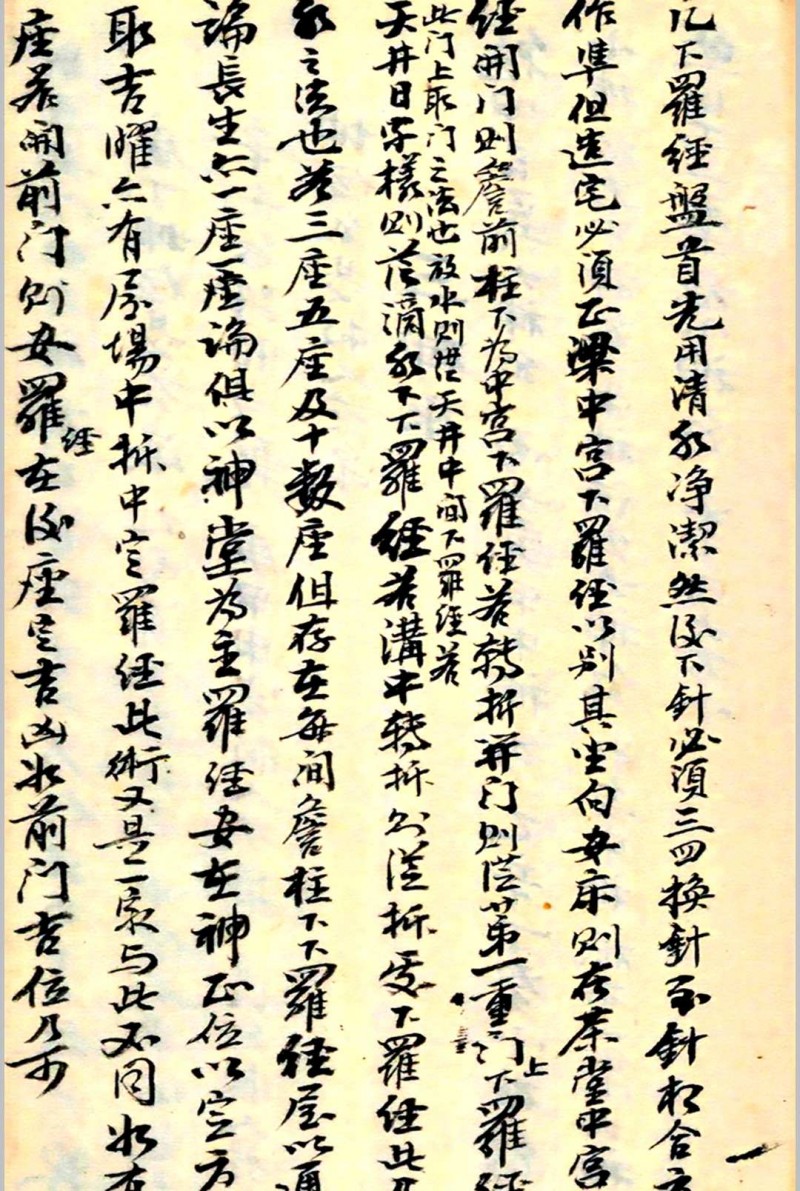 凡下羅經盤首先用清水净潔然後下針必須三四換針至針相合方
作準但造宅必須正梁中宮下羅經以别其坐向安床则在茶堂中宮
經開门则簷前柱下為中宮下羅經若轉拆并门则從第一重门上下羅經
此门上取门之法也放水则從天井中间下羅經若
天井日字樣则從滴水下下羅經若溝中轉拆则從拆處下羅經此
水之法也若三座五座及十数座但存在每间簷柱下下羅經屋以通
論長生亦一座一座論俱以神堂為主羅經安在神正位以定方
取吉曜亦有屋場中拆中定羅經此術又是一家与此不同如有
座若開前门则安羅經在後座定吉凶如前门吉位乃可